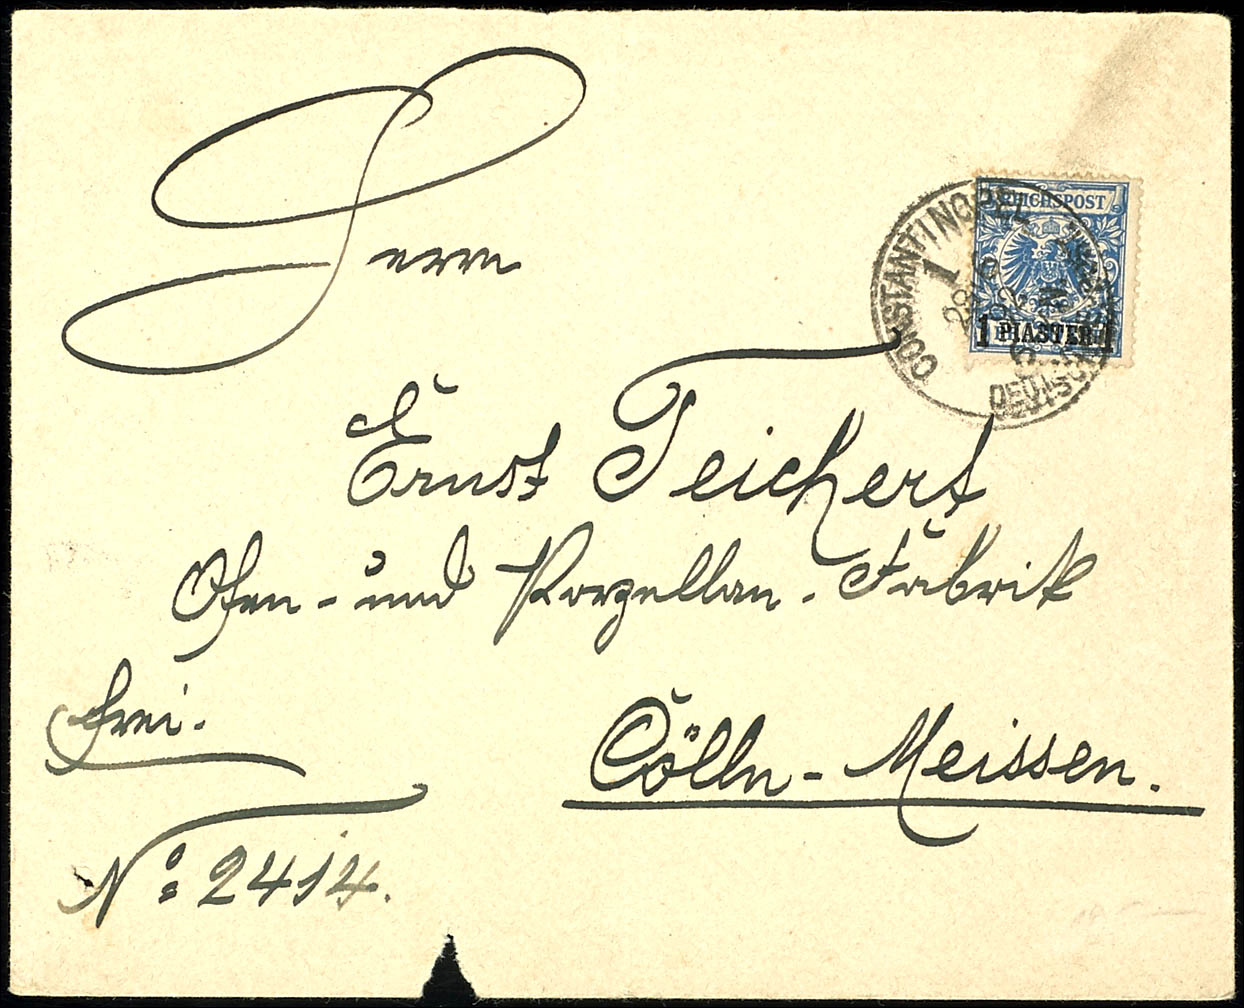 Herrn
REICHSPOST
CONSTANTINOPEL 1
1 PIASTER 1
DEUTSCHE
Ernst Teichert
Ofen- und Porzellan-Fabrik
frei.
Cölln-Meissen.
No: 2414.